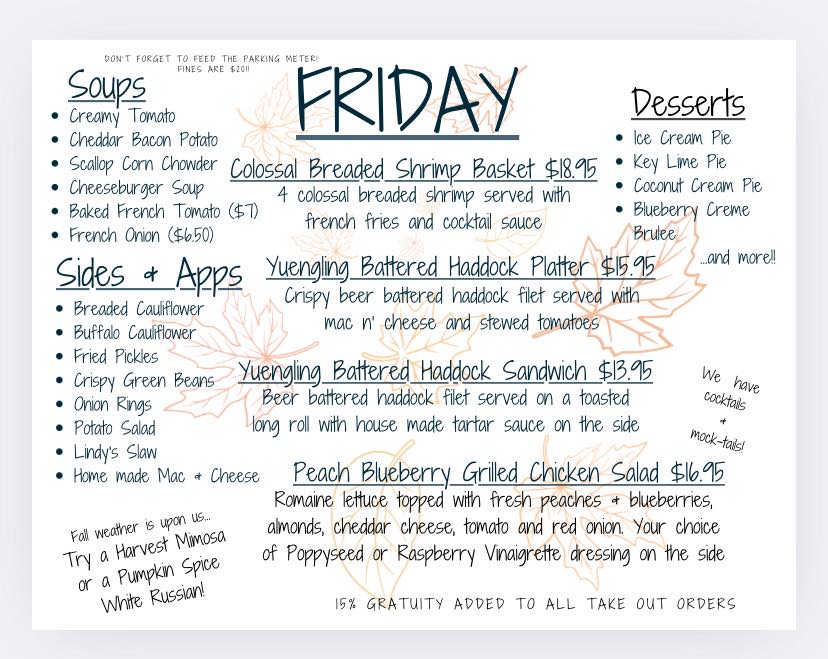 DON'T FORGET TO FEED THE PARKING METER!
FINES ARE $20!!
FRIDAY
Soups
Creamy Tomato
Cheddar Bacon Potato
Scallop Corn Chowder
Cheeseburger Soup
Baked French Tomato ($7)
French Onion ($6.50)
Sides & Apps
Breaded Cauliflower
Buffalo Cauliflower
Fried Pickles
Crispy Green Beans
Onion Rings
Potato Salad
Lindy's Slaw
Home made Mac & Cheese
Fall weather is upon us...
Try a Harvest Mimosa
or a Pumpkin Spice
White Russian!
Colossal Breaded Shrimp Basket $18.95
4 colossal breaded shrimp served with
french fries and cocktail sauce
Yuengling Battered Haddock Platter $15.95
Crispy beer battered haddock filet served with
mac n' cheese and stewed tomatoes
Yuengling Battered Haddock Sandwich $13.95
Beer battered haddock filet served on a toasted
long roll with house made tartar sauce on the side
Peach Blueberry Grilled Chicken Salad $16.95
Romaine lettuce topped with fresh peaches & blueberries,
almonds, cheddar cheese, tomato and red onion. Your choice
of Poppyseed or Raspberry Vinaigrette dressing on the side
15% GRATUITY ADDED TO ALL TAKE OUT ORDERS
Desserts
Ice Cream Pie
Key Lime Pie
Coconut Cream Pie
Blueberry Creme
Brulee
...and more!!
We have
cocktails
&
mock-tails!